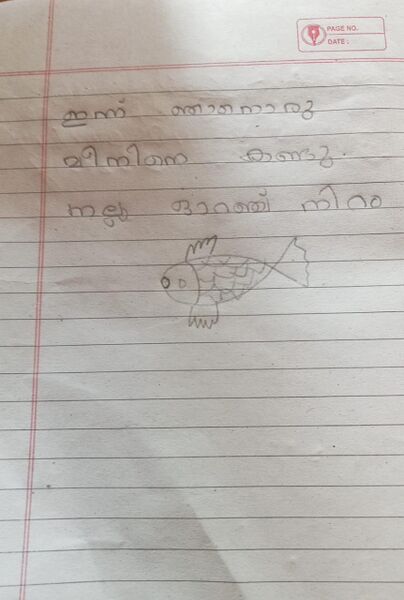 PAGE NO.
DATE :
ഇന്ന് ഞാനൊരു
മീനിനെ കണ്ടു.
നല്ല ഓറഞ്ച് നിറം